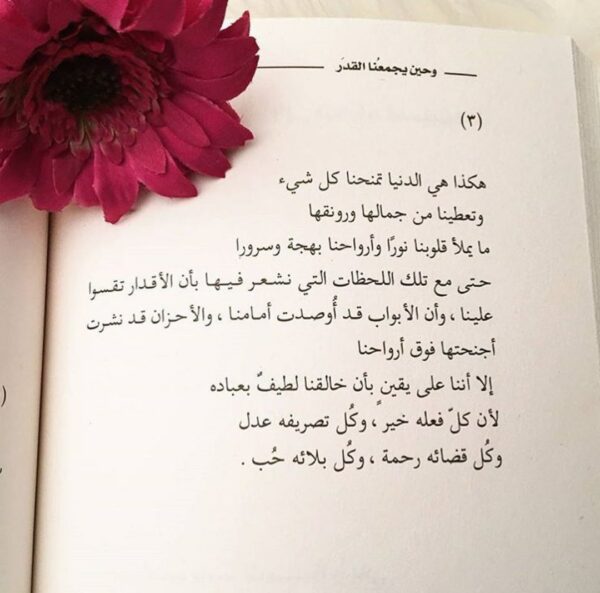 وحين يجمعُنا القدَر
(٣)
هكذا هي الدنيا تمنحنا كل شيء
وتعطينا من جمالها ورونقها
ما يملأ قلوبنا نورًا وأرواحنا بهجة وسرورا
حتى مع تلك اللحظات التي نشعر فيها بأن الأقدار تقسوا
علينا ، وأن الأبواب قد أُوصدت أمامنا ، والأحزان قد نشرت
أجنحتها فوق أرواحنا
إلا أننا على يقينٍ بأن خالقنا لطيفٌ بعباده
لأن كلّ فعله خير ، وكُل تصريفه عدل
وكُل قضائه رحمة ، وكُل بلائه حُب .